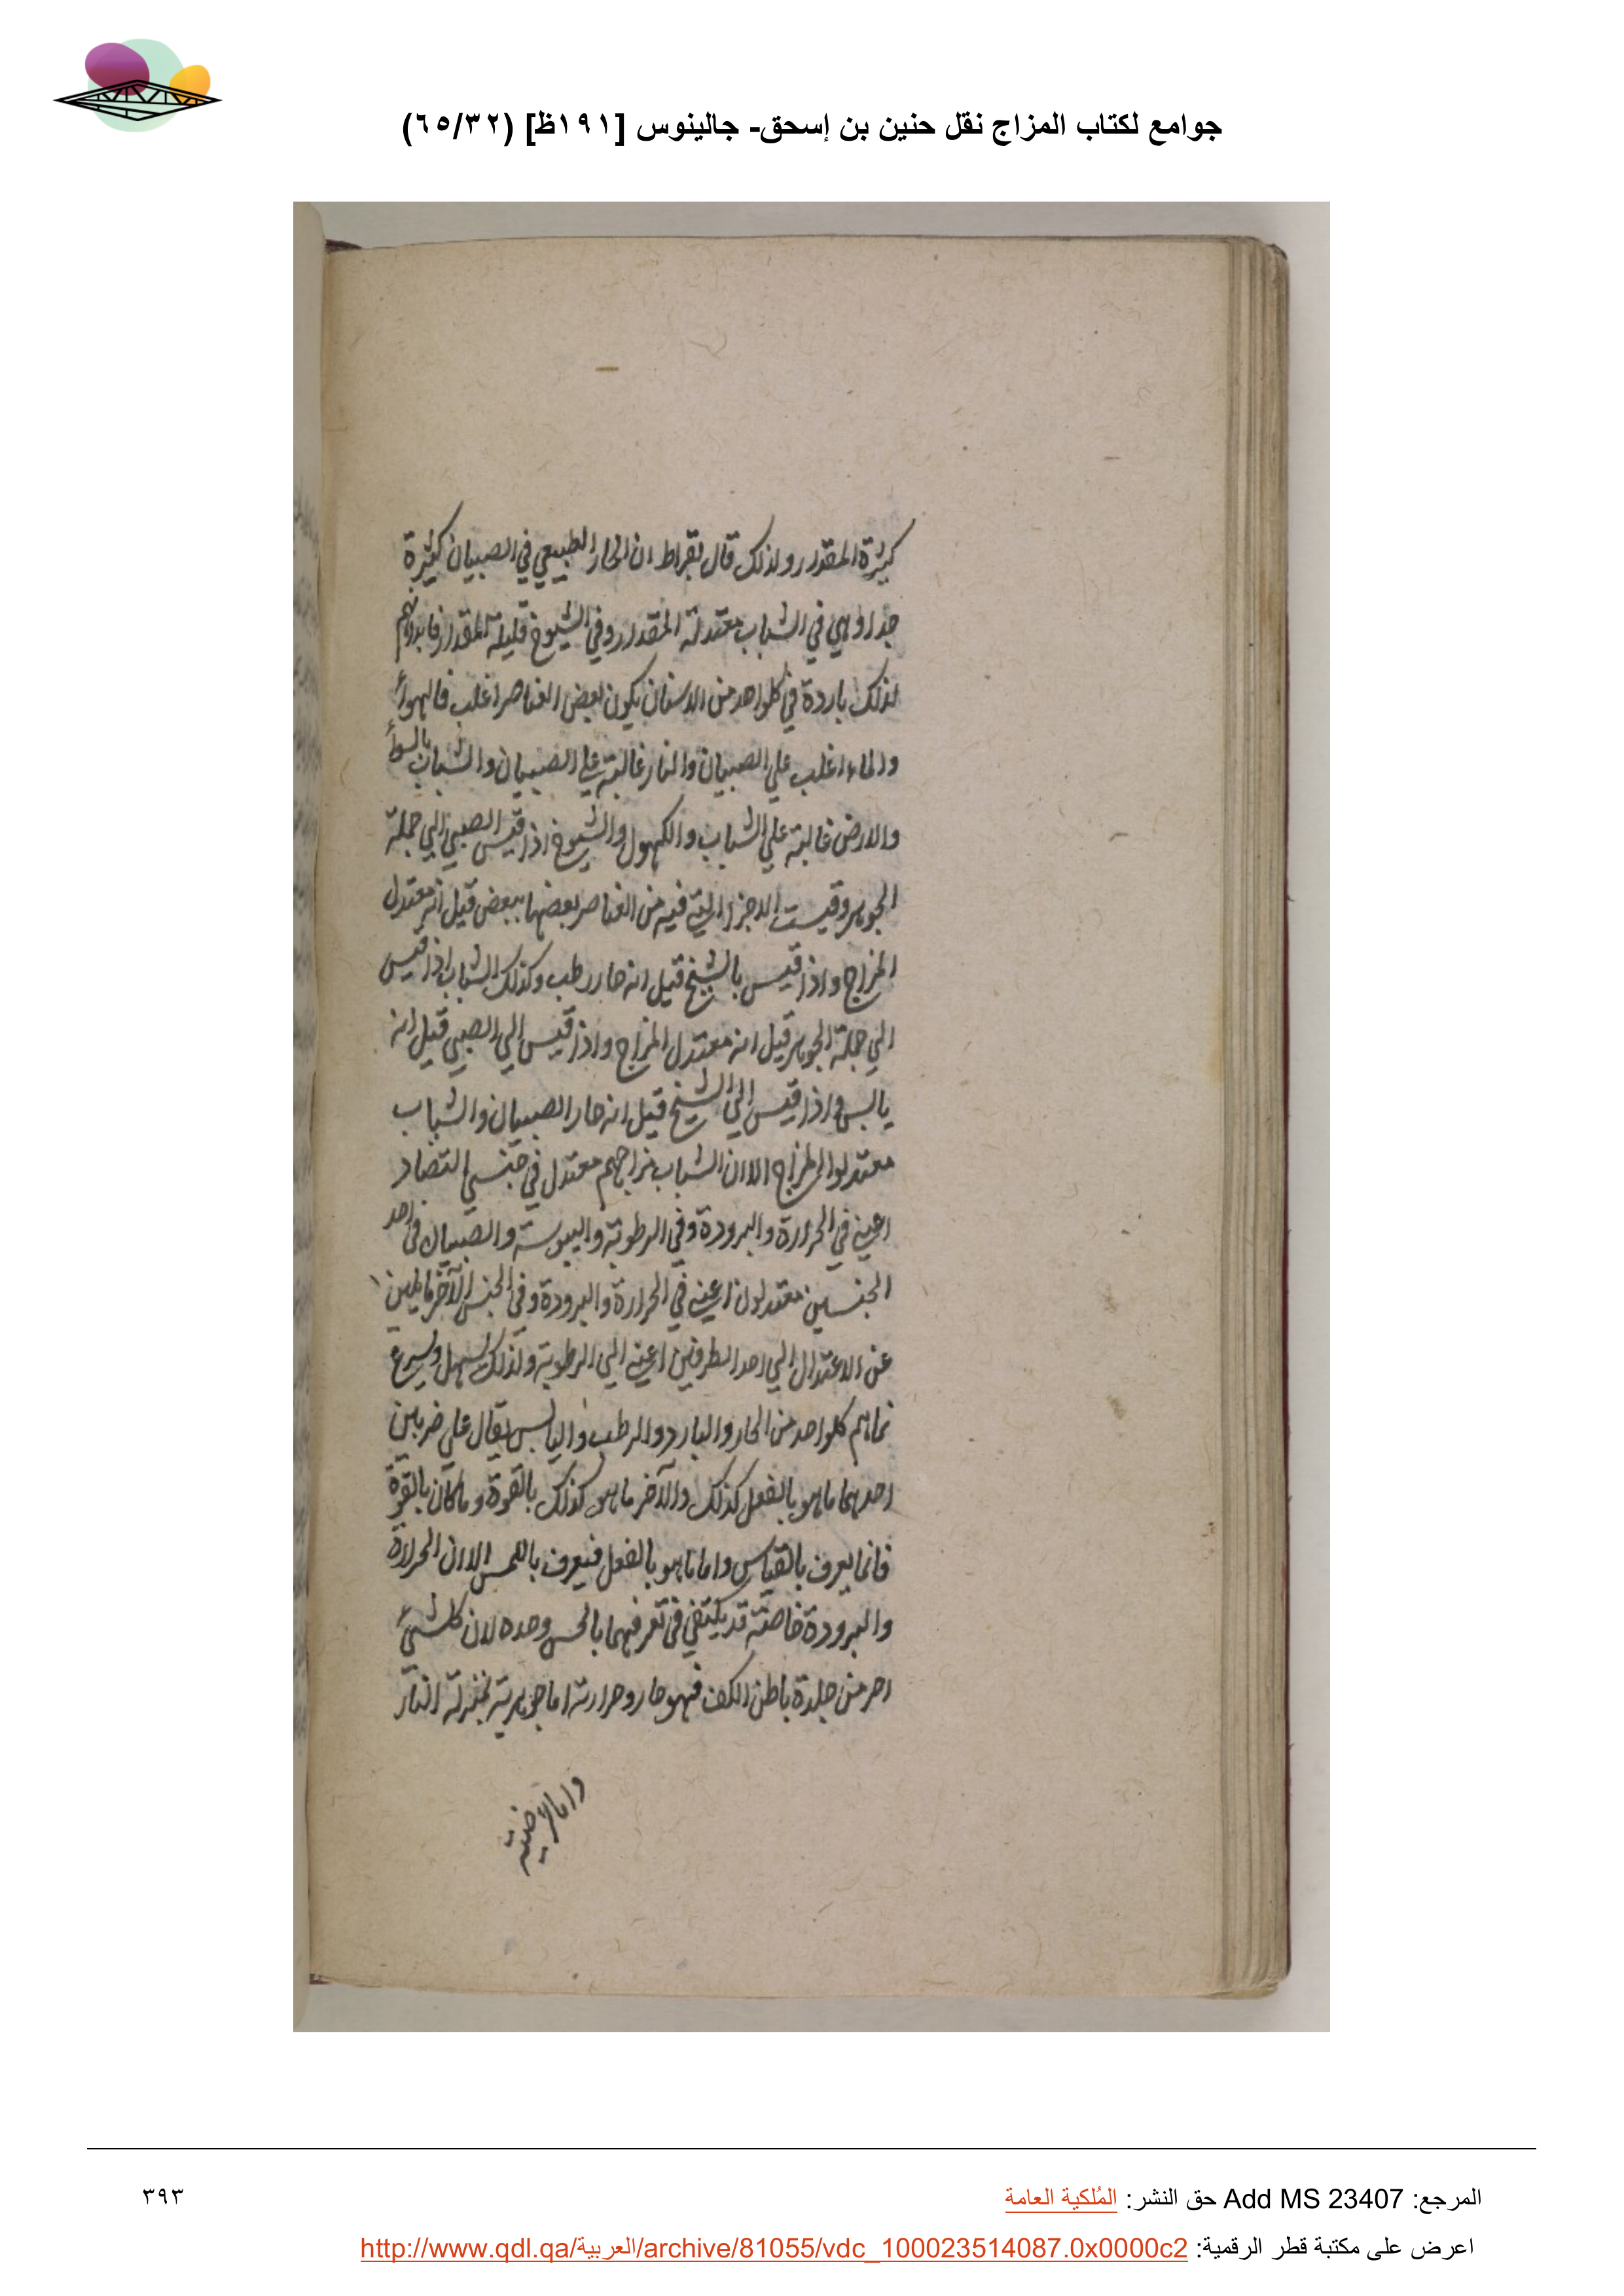 جوامع لكتاب المزاج نقل حنين بن إسحق- جالينوس [١٩١ظ] (٦٥/٣٢)
كثيرة المقدار ولذلك قال بقراط ان الحار الطبيعي في الصبيان كثيرة
جدا وهي في الشباب معتدلة المقدار وفي الشيوخ قليلة المقدار فابدانهم
لذلك باردة في كلواحد من الاسنان يكون بعض العناصر اغلب فالهواء
والماء اغلب علي الصبيان والنار غالبة علي الصبيان والشباب بالسواء
والارض غالبة علي الشباب والكهول والشيوخ اذا قيس الصبي الي جملة
الجوهر وقيست الاجزا التي فيه من العناصر بعضها ببعض قيل انه معتدل
المزاج واذا قيس بالشيخ قيل انه حار رطب وكذلك الشباب اذا قيس
الي جملة الجوهر قيل انه معتدل المزاج واذا قيس الي الصبي قيل انه
يابس واذا قيس الي الشيخ قيل انه حار الصبيان والشباب
معتدلوا المزاج الا ان الشباب مزاجهم معتدل في جنسي التضاد
اعني في الحرارة والبرودة وفي الرطوبة واليبوسة والصبيان في احد
الجنسين معتدلون اعني في الحرارة والبرودة وفي الجنس الآخر مايلين
عن الاعتدال الي احد الطرفين اعني الي الرطوبة ولذلك يسهل ويسرع
نماهم كلواحد من الحار والبارد والرطب واليابس يقال علي ضربين
احدهما ما هو بالفعل كذلك والآخر ما هو كذلك بالقوة وما كان بالقوة
فانما يعرف بالقياس واما ما هو بالفعل فيعرف باللمس الا ان الحرارة
والبرودة خاصة قد يكتفي في تعرفهما بالحس وحده لان كل شيء
احر من جلدة باطن الكف فهو حار وحرارته اما جوهرية بمنزلة النار
واما عرضية
المرجع: Add MS 23407 حق النشر: المُلكية العامة
٣٩٣
اعرض على مكتبة قطر الرقمية: http://www.qdl.qa/العربية/archive/81055/vdc_100023514087.0x0000c2